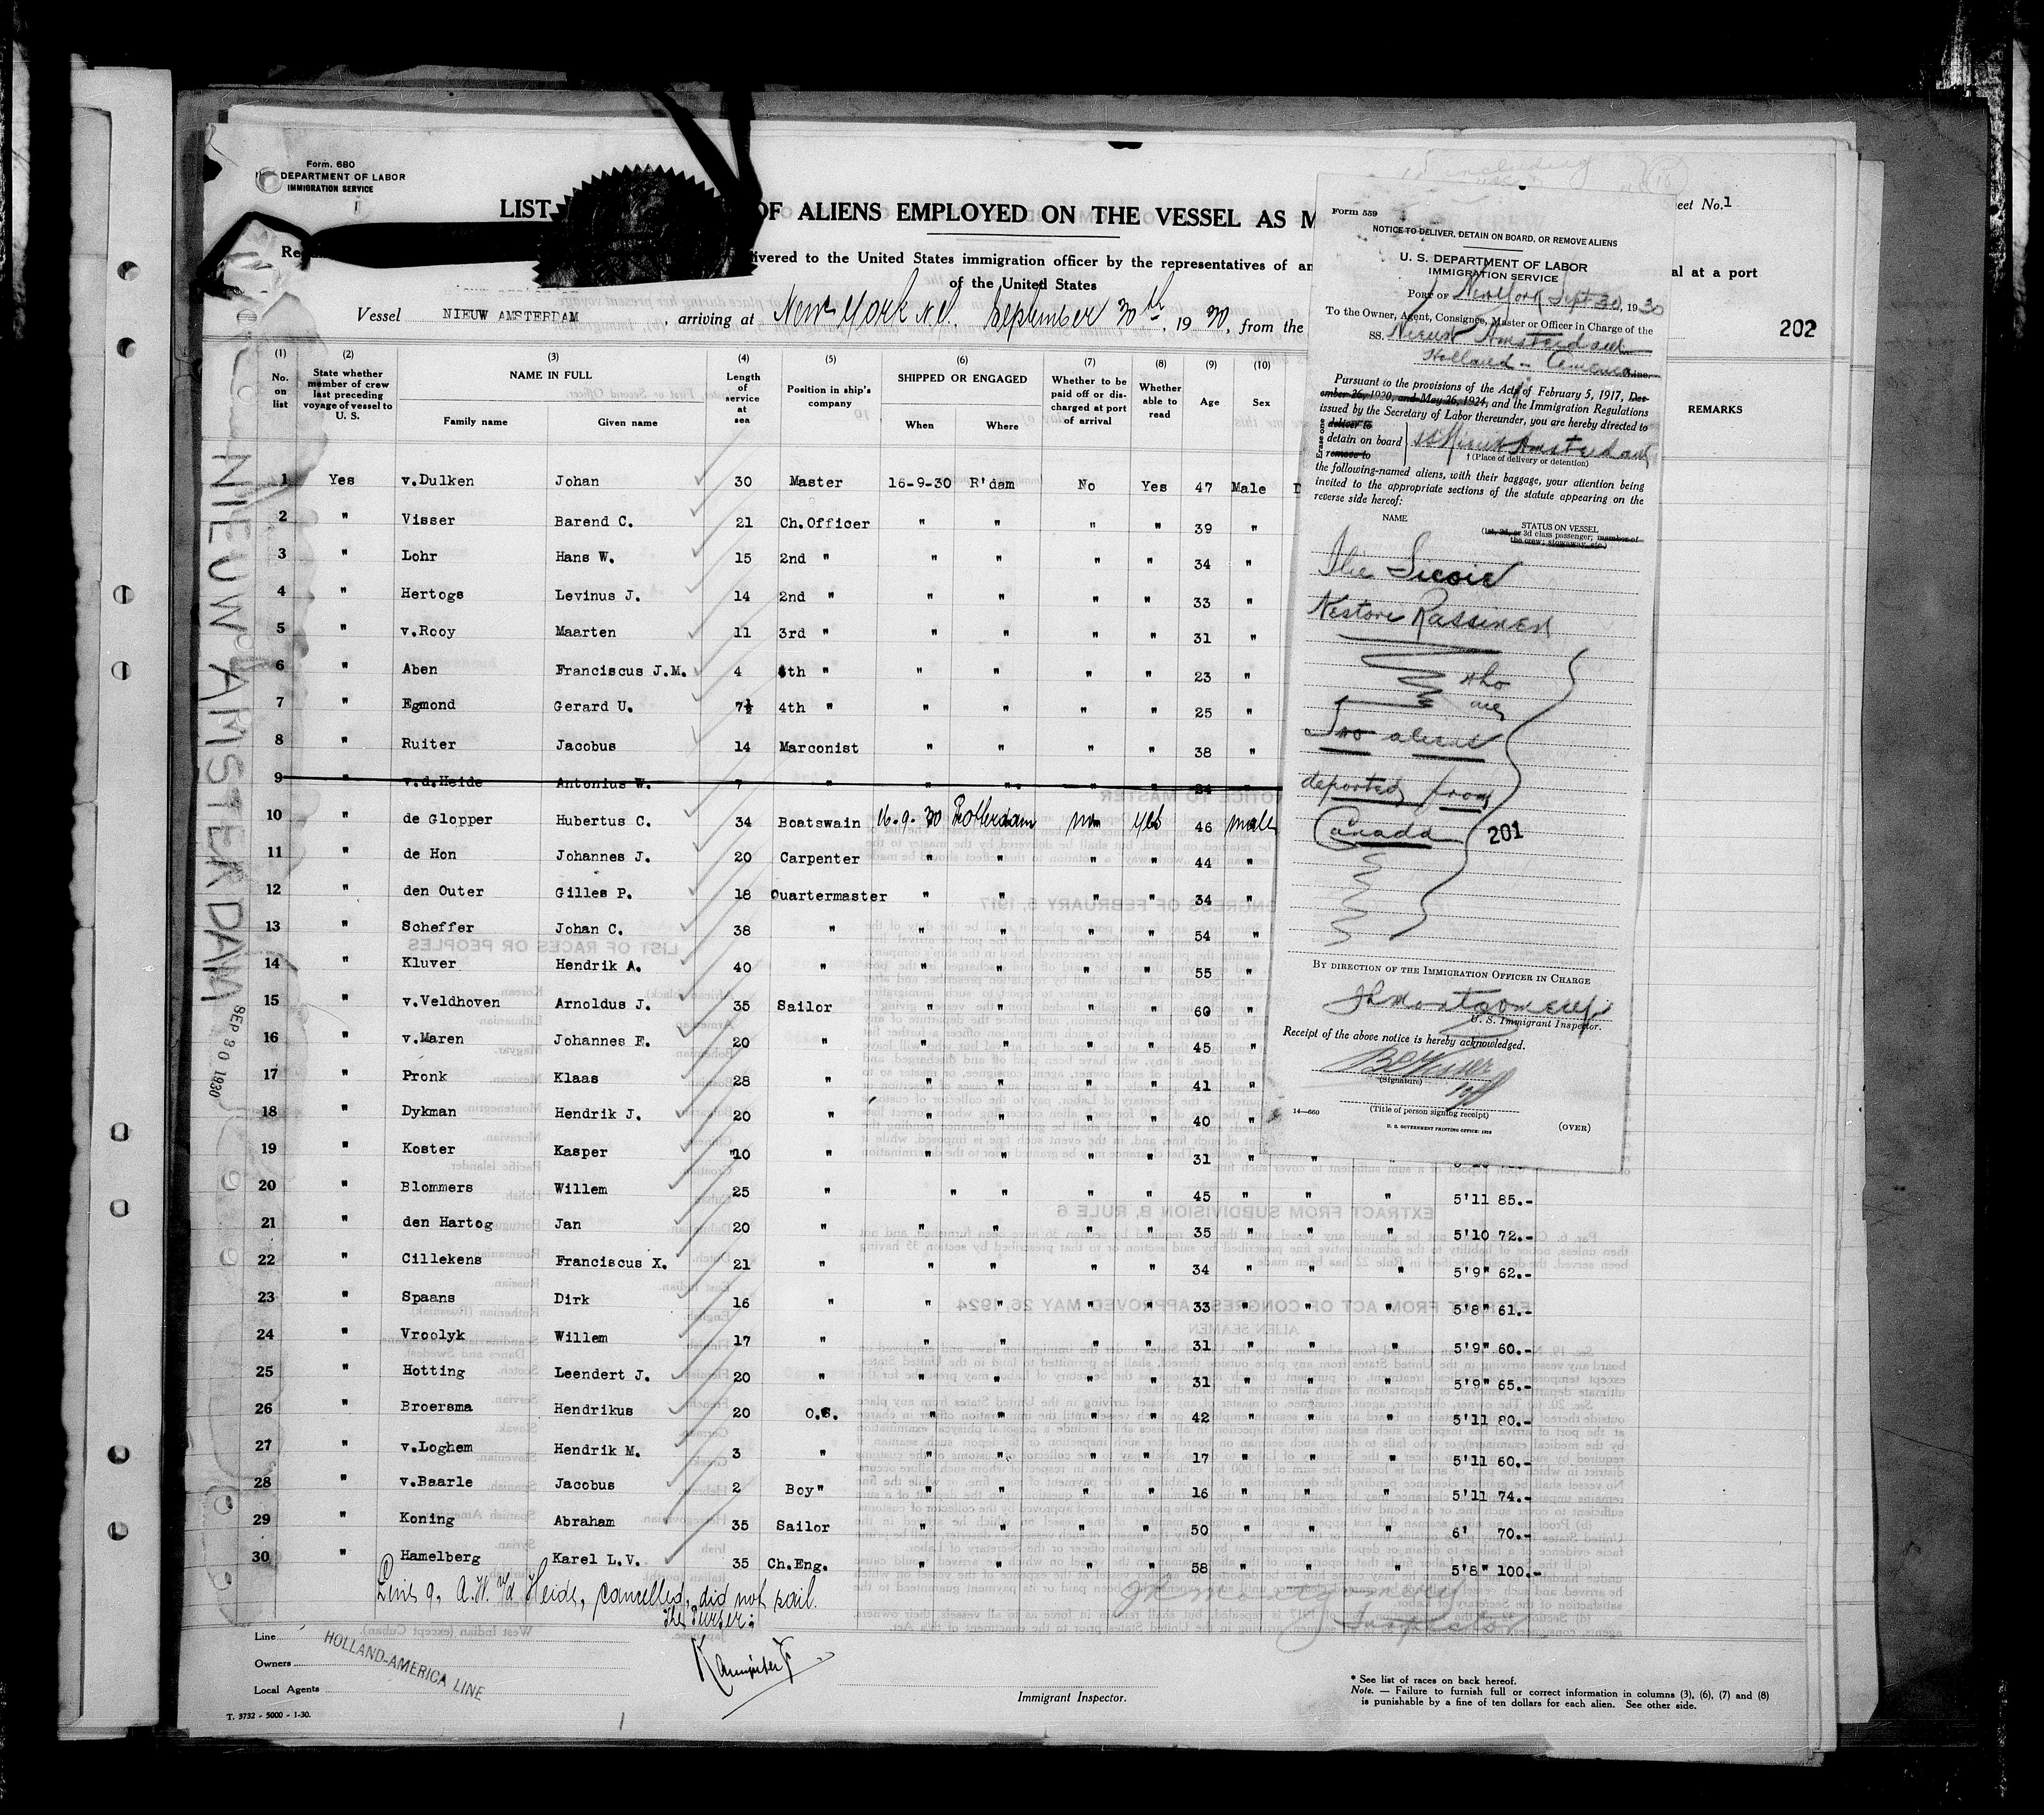 Form. 680
DEPARTMENT OF LABOR
IMMIGRATION SERVICE
LIST OF ALIENS EMPLOYED ON THE VESSEL AS M
eet No. 1
ivered to the United States immigration officer by the representatives of an
al at a port
of the United States
Vessel NIEUW AMSTERDAM, arriving at New York N.Y. September 30th, 1930, from the
202
(1) (2) (3) (4) (5) (6) (7) (8) (9) (10)
No. on list
State whether member of crew last preceding voyage of vessel to U. S.
NAME IN FULL
Family name Given name
Length of service at sea
Position in ship's company
SHIPPED OR ENGAGED
When Where
Whether to be paid off or discharged at port of arrival
Whether able to read
Age
Sex
REMARKS
1 Yes v.Dulken Johan 30 Master 16-9-30 R'dam No Yes 47 Male D
2 " Visser Barend C. 21 Ch.Officer " " " " 39 "
3 " Lohr Hans W. 15 2nd " " " " " 34 "
4 " Hertogs Levinus J. 14 2nd " " " " " 33 "
5 " v.Rooy Maarten 11 3rd " " " " " 31 "
6 " Aben Franciscus J.M. 4 4th " " " " " 23 "
7 " Egmond Gerard U. 7½ 4th " " " " " 25 "
8 " Ruiter Jacobus 14 Marconist " " " " 38 "
9 " v.d.Heide Antonius W. 7 " " " " " 24 "
10 " de Glopper Hubertus C. 34 Boatswain 16-9-30 Rotterdam no yes 46 male
11 " de Hon Johannes J. 20 Carpenter " " " " 44 "
12 " den Outer Gilles P. 18 Quartermaster " " " " 34 "
13 " Scheffer Johan C. 38 " " " " " 54 "
14 " Kluver Hendrik A. 40 " " " " " 55 "
15 " v.Veldhoven Arnoldus J. 35 Sailor " " " " 60 "
16 " v.Maren Johannes F. 20 " " " " " 45 "
17 " Pronk Klaas 28 " " " " " 41 "
18 " Dykman Hendrik J. 20 " " " " " 40 "
19 " Koster Kasper "10 " " " " " 31 " "
20 " Blommers Willem 25 " " " " " 45 " " " 5'11 85.-
21 " den Hartog Jan 20 " " " " " 35 " " " 5'10 72.-
22 " Cillekens Franciscus X. 21 " " " " " 34 " " " 5'9" 62.-
23 " Spaans Dirk 16 " " " " " 33 " " " 5'8" 61.-
24 " Vroolyk Willem 17 " " " " " 31 " " " 5'9" 60.-
25 " Hotting Leendert J. 20 " " " " " 31 " " " 5'9" 65.-
26 " Broersma Hendrikus 20 O.S. " " " " 42 " " " 5'11 80.-
27 " v.Loghem Hendrik M. 3 " " " " " 17 " " " 5'11 60.-
28 " v.Baarle Jacobus 2 Boy" " " " " 16 " " " 5'11 74.-
29 " Koning Abraham 35 Sailor " " " " 50 " " " 6' 70.-
30 " Hamelberg Karel L.V. 35 Ch.Eng. " " " " 58 " " " 5'8" 100.-
Line 9, A.W. v/d Heide, cancelled, did not sail.
The Purser:
JR Montgomery
Inspector
Line
Owners
Local Agents
HOLLAND-AMERICA LINE
T. 3732 - 5000 - 1-30.
Immigrant Inspector.
* See list of races on back hereof.
Note. — Failure to furnish full or correct information in columns (3), (6), (7) and (8)
is punishable by a fine of ten dollars for each alien. See other side.
NIEUW AMSTERDAM
SEP 30 1930
Form 559
NOTICE TO DELIVER, DETAIN ON BOARD, OR REMOVE ALIENS
U. S. DEPARTMENT OF LABOR
IMMIGRATION SERVICE
PORT OF New York Sept 30, 1930
To the Owner, Agent, Consignee, Master or Officer in Charge of the
SS. Nieuw Amsterdam
Holland - America Line.
Pursuant to the provisions of the Act of February 5, 1917, Dec-
ember 26, 1920, and May 26, 1924, and the Immigration Regulations
issued by the Secretary of Labor thereunder, you are hereby directed to
Erase one
deliver to
detain on board SS Nieuw Amsterdam
remove to
† (Place of delivery or detention)
the following-named aliens, with their baggage, your attention being
invited to the appropriate sections of the statute appearing on the
reverse side hereof:
NAME
STATUS ON VESSEL
(1st, 2d, or 3d class passenger; member of
the crew; stowaway, etc.)
Ilie
Nestore Rassinen
who
are
Two aliens
deported from
Canada
201
BY DIRECTION OF THE IMMIGRATION OFFICER IN CHARGE
JR Montgomery
U. S. Immigrant Inspector.
Receipt of the above notice is hereby acknowledged.
(Signature)
(Title of person signing receipt)
14—660
U. S. GOVERNMENT PRINTING OFFICE: 1928
(OVER)